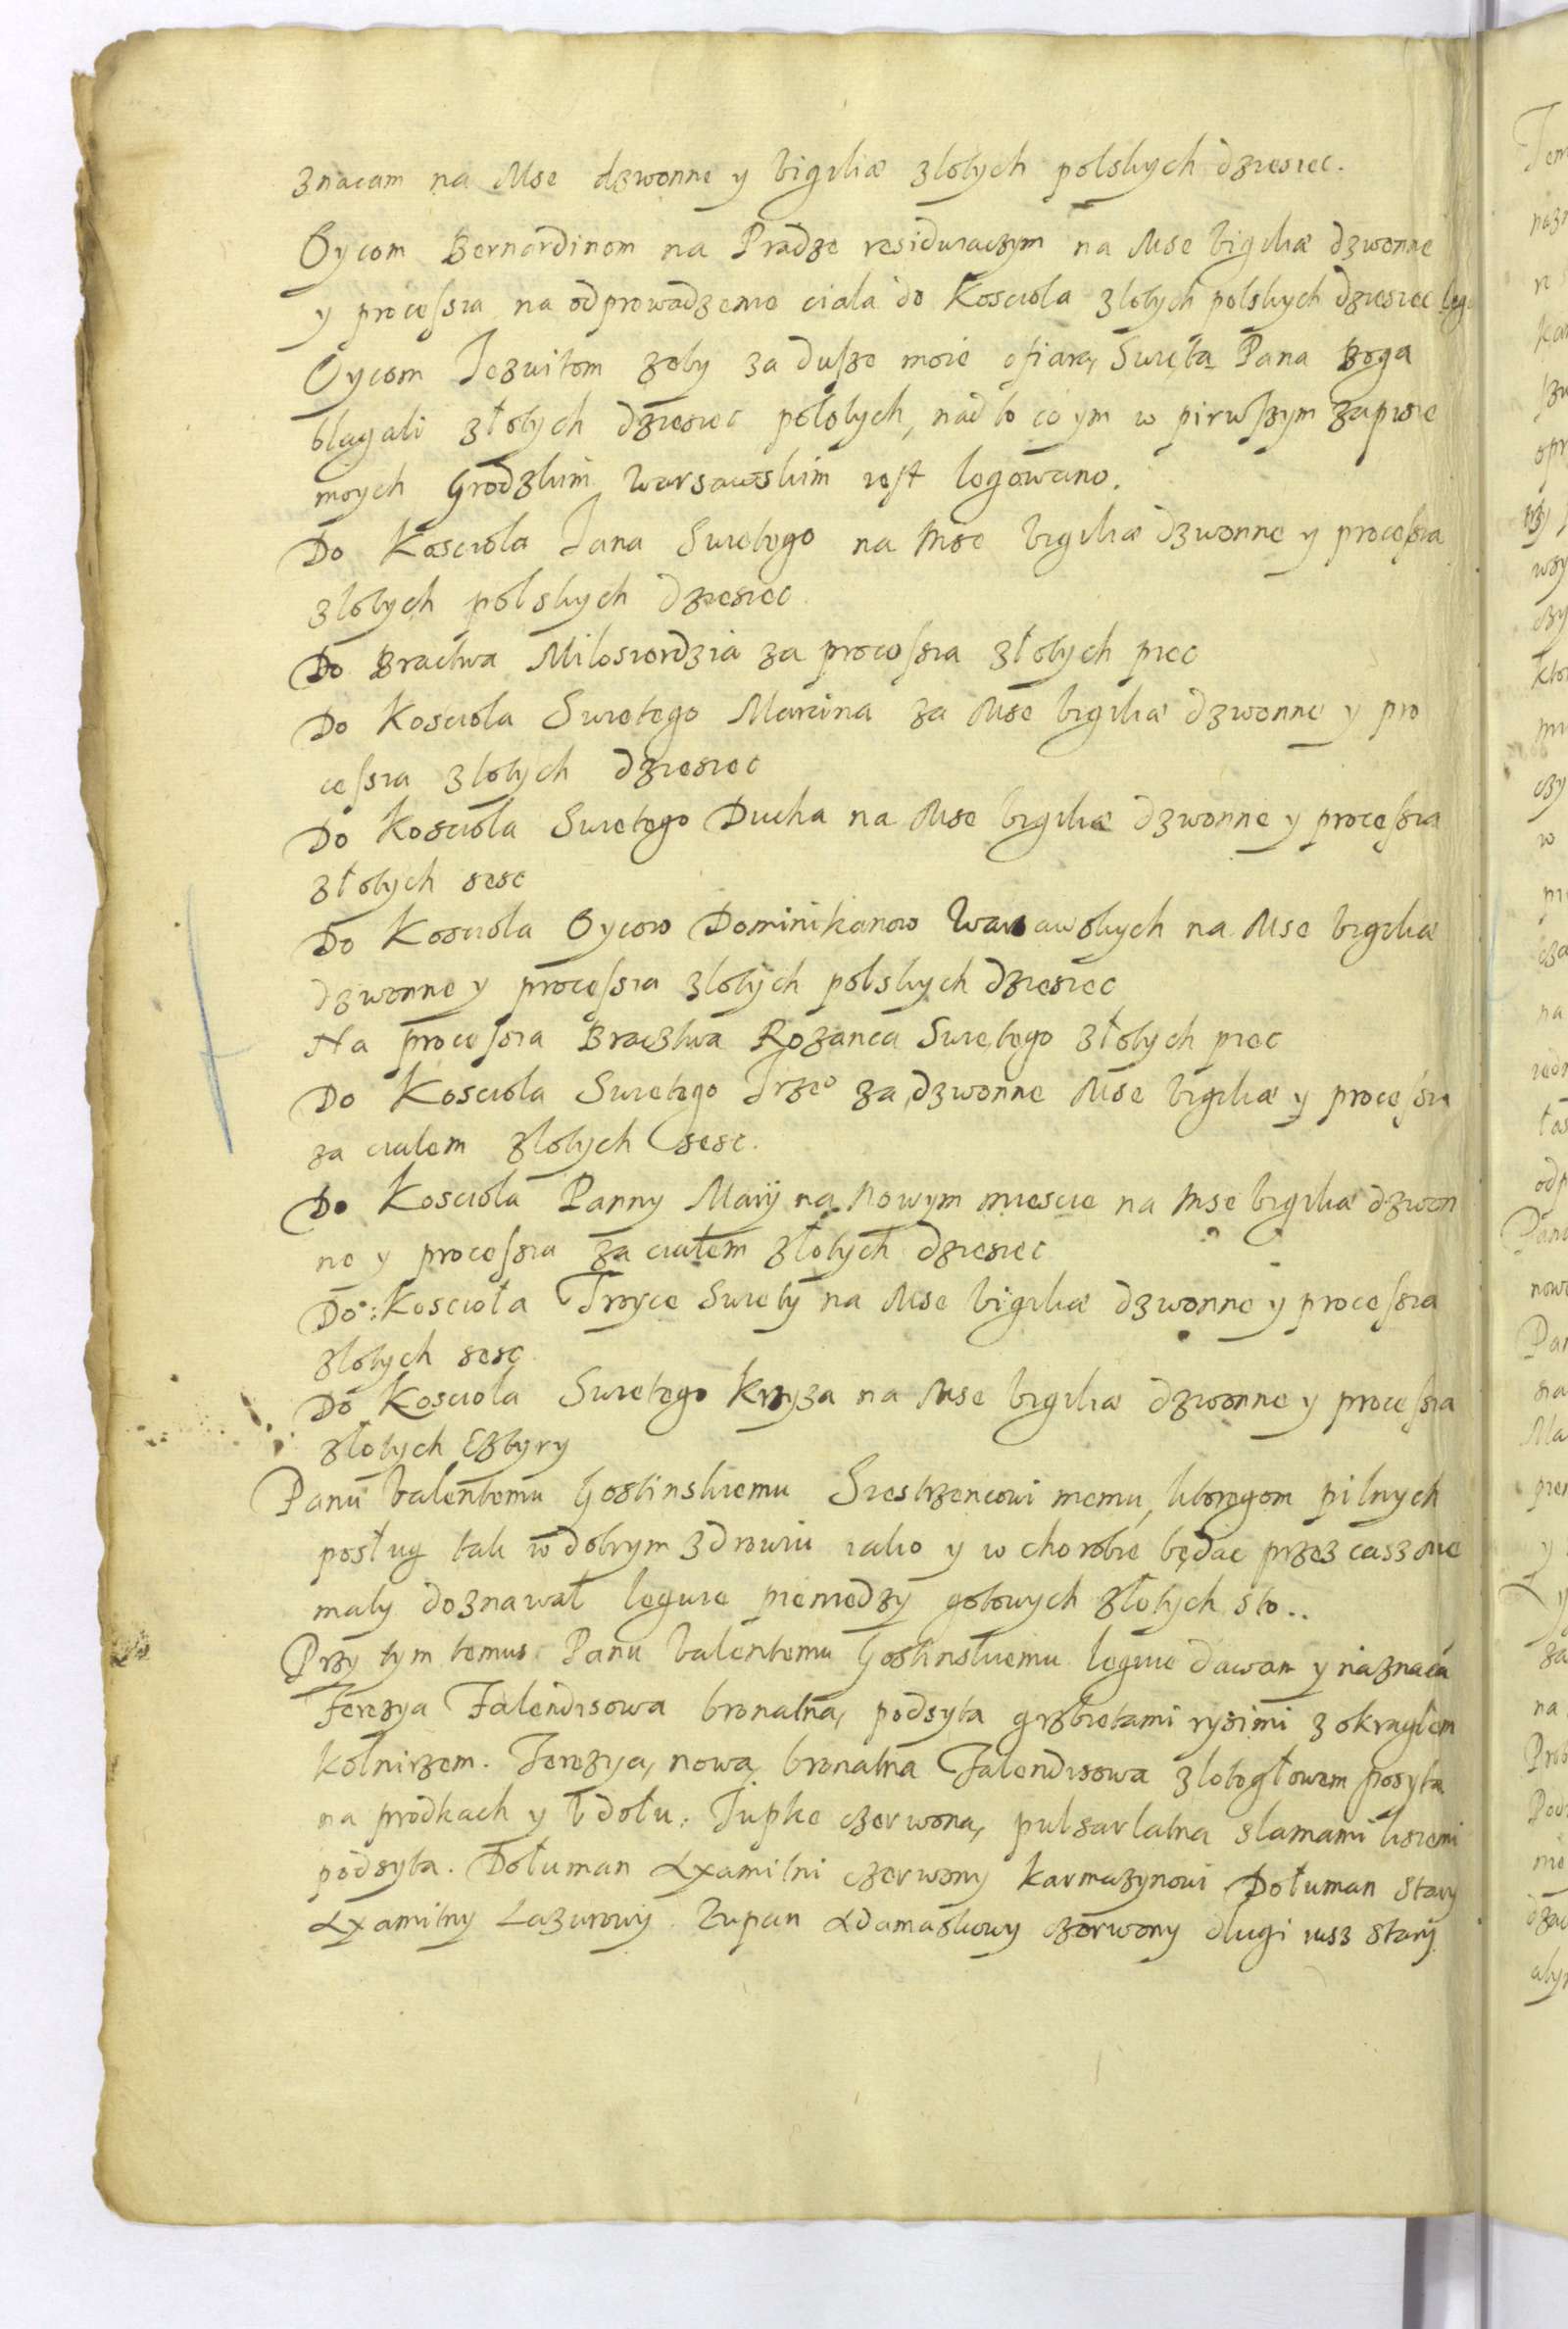 znacam na Mse dzwonne y bigiliæ zlotych polskych dziesiec.
Oycom Bernardinom na Pradze residuiaczym na Mse bigiliæ dzwonne
y processia na odprowadzenie ciala do Kosciola zlotych polskych dziesiec
Oycom Jezuitom zeby za dusze moie ofiarą Swięta Pana Boga
blagali złotych dziesiec polotych, nad to co ym w pirwszym zapisie
moych Grodzkim Warsawskim iest legowano.
Do Kosciola Jana Swietego na Mse bigiliæ dzwonne y processia
zlotych polskych dziesiec.
Do Bractwa Milosierdzia za processia złotych piec
Do Kosciola Swietego Marcina za Mse bigiliæ dzwonne y pro
cessia zlotych dziesiec
Do Kosciola Swietego Ducha na Mse bigiliæ dzwonne y processia
złotych sesc
Do Kosciola Oycow Dominikanow Warsawskych na Mse bigiliæ
dzwonne y processia zlotych polskych dziesiec
Na processia Bracztwa Rozanca Swietego złotych piec
Do Kosciola Swietego Jrzeo za dzwonne Mse bigiliæ y processia
za cialem zlotych sesc.
Do Kosciola Panny Marij na Nowym miescie na Mse bigiliæ dzwon
ne y processia za ciałem złotych dziesiec
Do: Kosciola Troyce Swiety na Mse bigiliæ dzwonne y processia
zlotych sesc.
Do Kosciola Swietego Krzyza na Mse bigiliæ dzwonne y processia
złotych Cztyry
Panu Valentemu Gostinskiemu Siestrzencowi memu, ktoregom pilnych
posług tak w dobrym zdrowiu iako y w chorobie będac przez cas
maly doznawał leguie pieniedzy gotowych złotych sto..
Przy tym temus Panu Valentemu Gostinskiemu leguie dawam y naznaca
Ferezya Falendisowa bronatna, podsyta grzbietami rysimi z okraglem
kolnirzem. Ferezya, nowa, bronatna Falendisowa zlotogłowem posyta
na prodkach y v dołu. Jupke czerwona, pulsarlatna slamami lisiemi
podsyta. Dołuman Axamitni czerwony karmazynowi Dołuman stary
Axamitny Lazurowy. Zupan Adamaskowy czerwony dlugi iusz starij